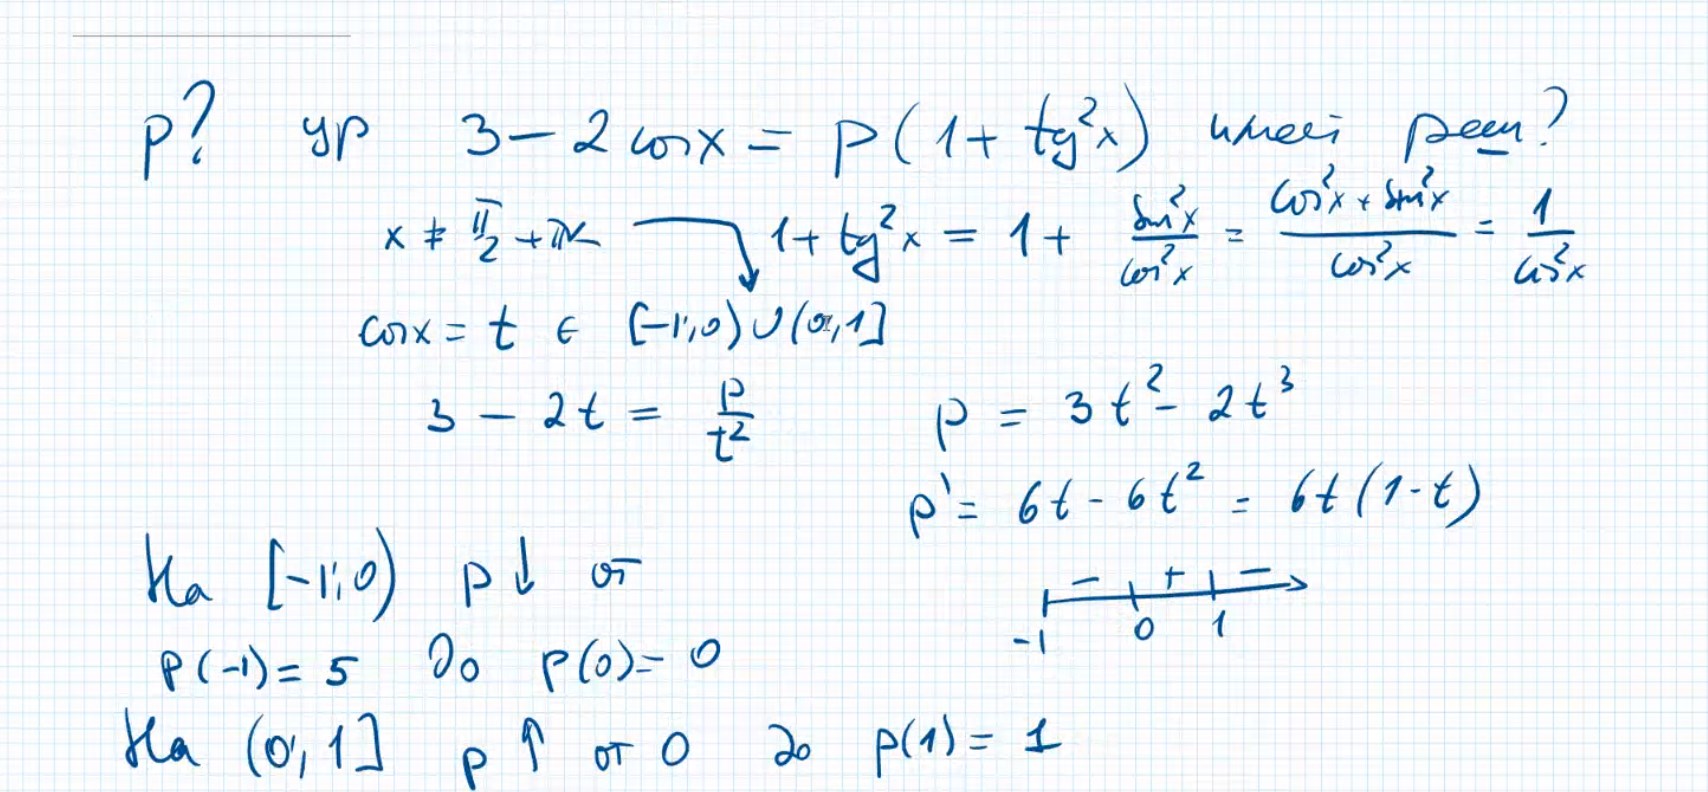 p? ур 3 - 2 cos x = p(1 + tg²x) имеет реш?
x ≠ π/2 + πk 1 + tg²x = 1 + sin²x/cos²x = (cos²x + sin²x)/cos²x = 1/cos²x
cos x = t ∈ [-1; 0) ∪ (0, 1]
3 - 2t = p/t² p = 3t² - 2t³
p' = 6t - 6t² = 6t(1-t)
На [-1; 0) p↓ от
- + -
-1 0 1
p(-1) = 5 до p(0) = 0
На (0; 1] p↑ от 0 до p(1) = 1